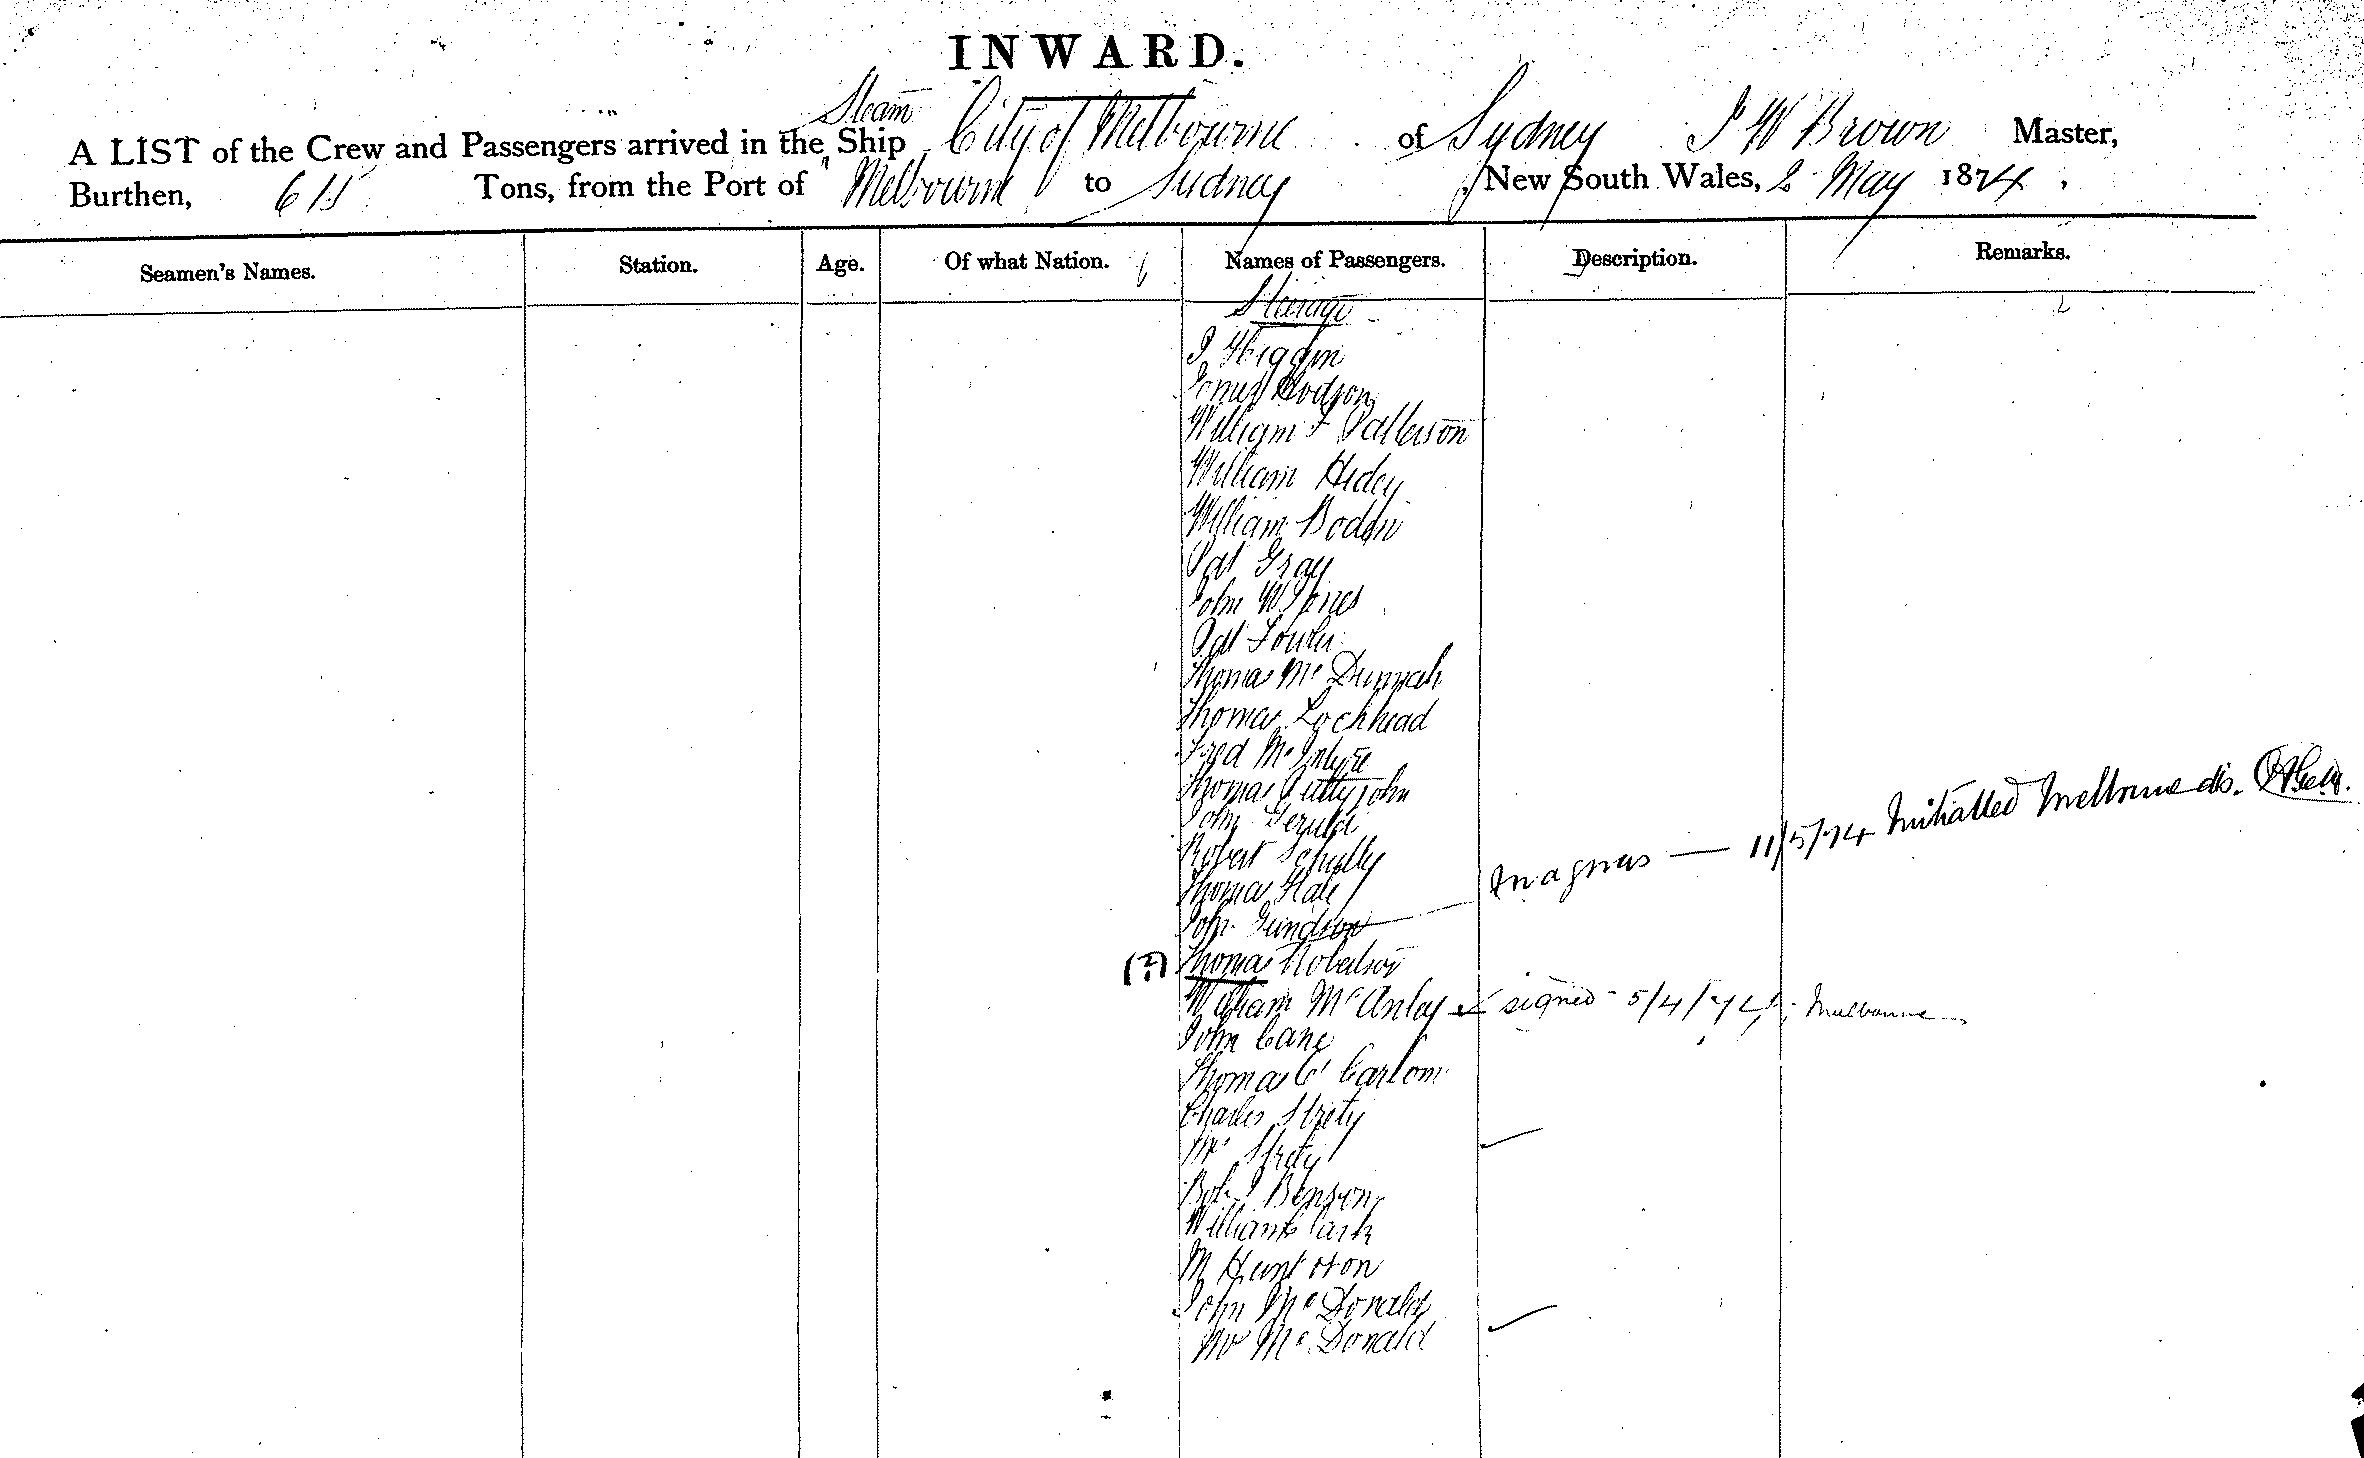 INWARD.
Steam
A LIST of the Crew and Passengers arrived in the Ship City of Melbourne of Sydney J W Brown Master,
Burthen, 615 Tons, from the Port of Melbourne to Sydney New South Wales, 2 May 1874.
Seamen's Names. Station. Age. Of what Nation. Names of Passengers. Description. Remarks.
Steerage
J Higgin
James Hodson
William F Patterson
William Hedey
William
Pat Gray
John W Jones
Pat Fowler
Thomas Mc
Thomas Lochhead
Fred McIntyre
Thomas Pettyjohn
John
Robert
Thomas Hall
John Magnus — 11/5/74 Initialled Melbourne dis.
(?) Thomas Robertson
William McAnlay signed - 5/4/74 - Melbourne
John Cane
Thomas
Charles Strety
Mrs Strety
Robt J Benson
William Clark
M
John McDonald
Mrs McDonald